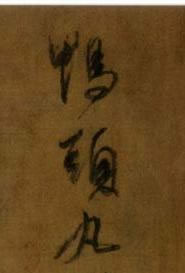 鴨頭丸